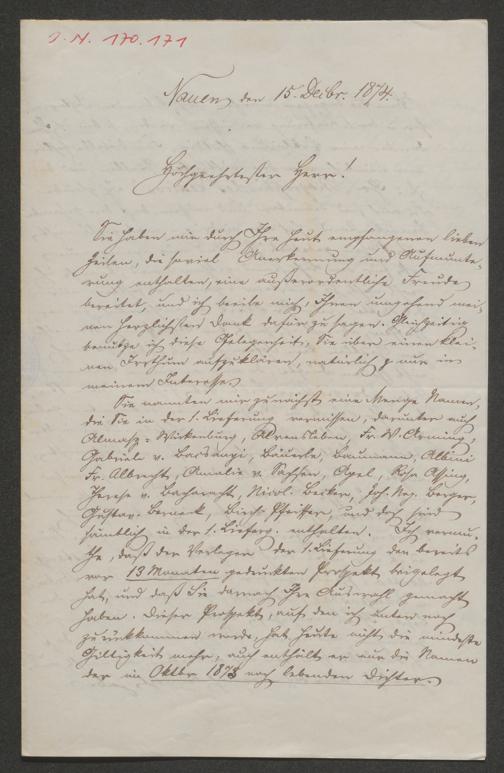 I. N. 170.171
Nauen, den 15. Decbr. 1874.
Hochgeehrtester Herr!
Sie haben mir durch Ihre heut empfangenen lieben
Zeilen, die soviel Anerkennung und Aufmunte-
rung enthalten, eine außerordentliche Freude
bereitet, und ich beeile mich, Ihnen umgehend mei-
nen herzlichsten Dank dafür zu sagen. Gleichzeitig
benutze ich diese Gelegenheit, Sie über einen klei-
nen Irrthum aufzuklären, natürlich nur in
meinem Interesse.
Sie nannten mir zunächst eine Menge Namen,
die Sie in der 1. Lieferung vermissen, darunter auch
Almasy-Wickenburg, Alvensleben, Fr. W. Arming,
Gabriele v. Bacsanyi, Bäuerle, Baumann, Albini
Fr. Albrecht, Amalie v. Sachsen, Apel, Rosa Assing,
Therese v. Bacharacht, Nicol. Becker, Joh. Nep. Berger,
Gustav Berneck, Birch-Pfeiffer, und doch sind
sämtlich in der 1. Lieferg. enthalten. Ich vermu-
the, daß der Verleger der 1. Lieferung den bereits
vor 13 Monaten gedruckten Prospekt beigelegt
hat, und daß Sie darnach Ihre Auswahl gemacht
haben. Dieser Prospekt, auf den ich unten noch
zurückkommen werde, hat heute nicht die mindeste
Giltigkeit mehr, auch enthält er nur die Namen
der im Oktbr 1873 noch lebenden Dichter.